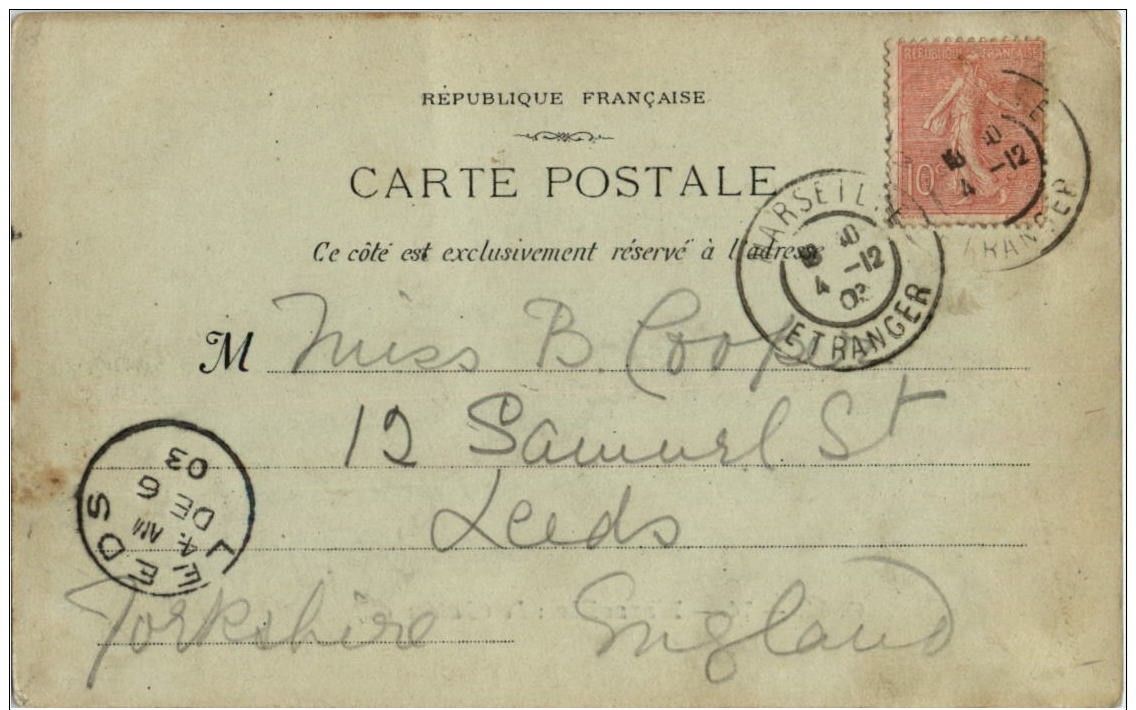 REPUBLIQUE FRANÇAISE
RÉPUBLIQUE FRANÇAISE
10
CARTE POSTALE
Ce côté est exclusivement réservé à l'adresse
MARSEILLE
4 -12
03
ETRANGER
4 -12
ETRANGER
M Miss B. Coop
12 Samuel St
Leeds
Yorkshire England
LEEDS
4. AM
DE 6
03